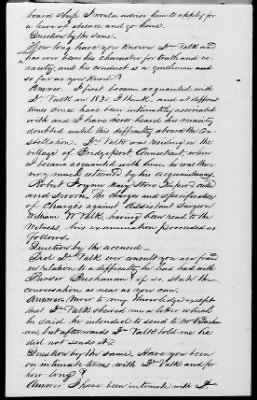 board ship I would advise him to apply for
a leave of absence and go home.
Question by the same.
How long have you known Dr Valk and
has ever been his character for truth and ve-
racity, and his conduct as a gentleman and
so far as you know?
Answer. I first became acquainted with
Dr Valk in 1832 I think, and at different
times since have been intimately associated
with and I have never heard his veracity
doubted until this difficulty aboard the Con-
stellation. Dr Valk was residing in the
village of Bridgeport Connecticut when
I became acquainted with him, he was then
very much esteemed by his acquaintances.
Robert Pogram Navy Store Keeper called
and sworn. The charges and specifications
of charges against Assistant Surgeon
William W Valk, having been read to the
Witness his examination proceeded as
follows.
Question by the accused—
Did Dr Valk ever consult you as a friend
in relation to a difficulty he has had with
Purser Buchanan? if so, state the
conversation as near as you can.
Answer. Never to my knowledge except
that Dr Valk shewed me a letter which
he said he intended to send to Mr Buchan-
an but afterwards Dr Valk told me he
did not send it.
Question by the same. Have you been
on intimate terms with Dr Valk and for
how long?
Answer. I have been intimate with Dr